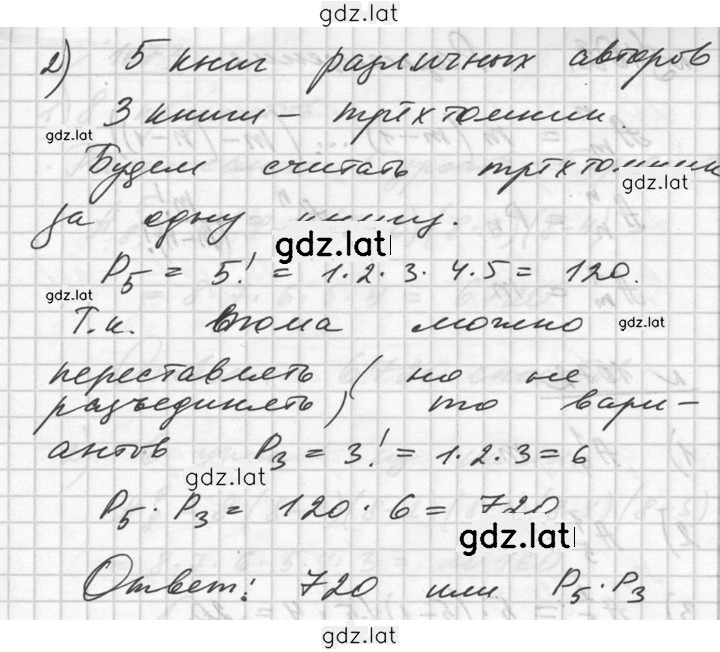 gdz.lat
2) 5 книг различных авторов
3 книги – трёхтомник.
gdz.lat
Будем считать трёхтомник
gdz.lat
за одну книгу.
gdz.lat
P₅ = 5! = 1·2·3·4·5 = 120.
gdz.lat
Т.к. тома можно
gdz.lat
переставлять (но не
разъединять) то вари-
антов P₃ = 3! = 1·2·3 = 6
gdz.lat
P₅·P₃ = 120·6 = 720
gdz.lat
Ответ: 720 или P₅·P₃
gdz.lat